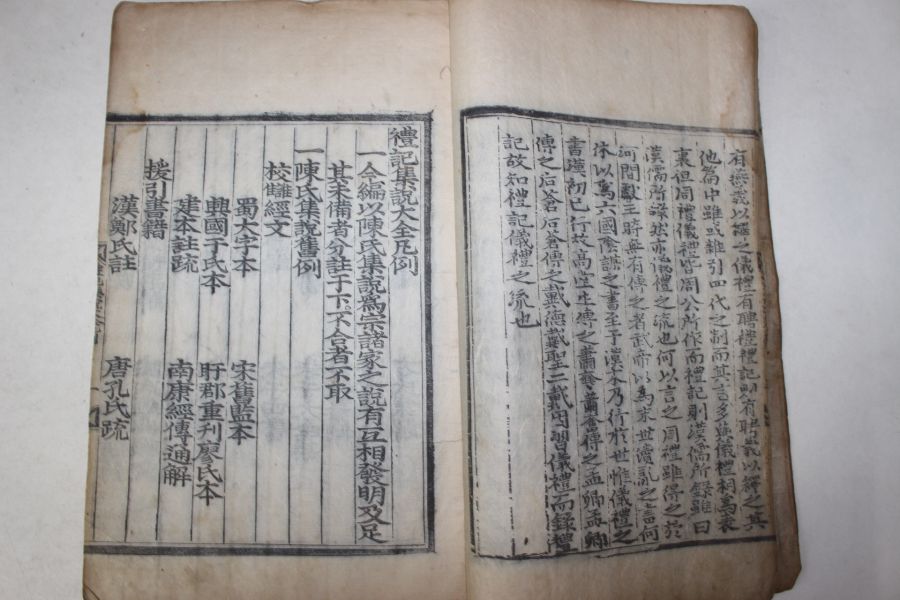 有燕義以繹之儀禮有聘禮禮記則有聘義以繹之其
他篇中雖或雜引四代之制而其言多與儀禮相爲表
裏但周禮儀禮皆周公所作而禮記則漢儒所錄雖曰
漢儒所錄然亦儀禮之流也何以言之周禮雖得之於
河間獻王時無有傳之者武帝以爲末世瀆亂之書何
休以爲六國陰謀之書至于漢末乃行於世惟儀禮之
書漢初已行故高堂生傳之蕭奮蕭奮傳之孟卿孟卿
傳之后蒼后蒼傳之戴德戴聖二戴因習儀禮而錄禮
記故知禮記儀禮之流也
禮記集說大全凡例
一今編以陳氏集說爲宗諸家之說有互相發明及足
其未備者分註于下不合者不取
一陳氏集說舊例
校讎經文
蜀大字本 宋舊監本
興國于氏本 盱郡重刊廖氏本
建本註疏 南康經傳通解
援引書籍
漢鄭氏註 唐孔氏疏